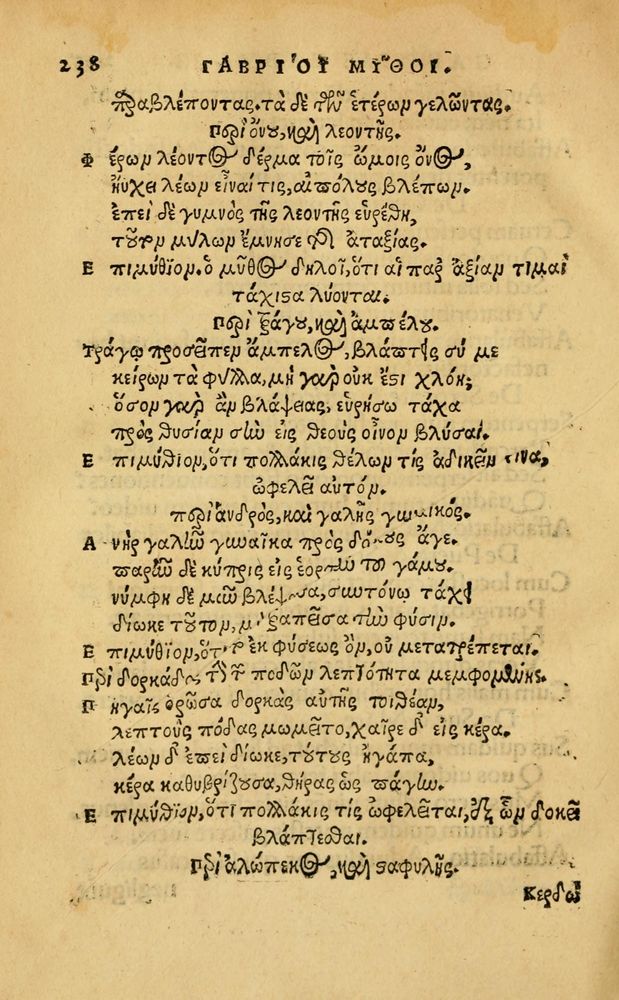 238 ΓΑΒΡΙΟΥ ΜΥΘΟΙ.
παραβλέποντας. τὰ δὲ τῶν ἑτέρων γελῶντας.
Περὶ ὄνου, καὶ λεοντῆς.
Φέρων λέοντος δέρμα τοῖς ὤμοις ὄνος,
ηὔχει λέων εἶναί τις, αἰπόλους βλέπων.
ἐπεὶ δὲ γυμνὸς τῆς λεοντῆς εὑρέθη,
τοῦτον μύλων ἔμνησε τῆς ἀταξίας.
Επιμύθιον. ὁ μῦθος δηλοῖ, ὅτι αἱ παρ ἀξίαν τιμαὶ
τάχιστα λύονται.
Περὶ τράγου, καὶ ἀμπέλου.
Τράγῳ προσεῖπεν ἄμπελος, βλάπτεις σύ με
κείρων τὰ φύλλα, μὴ γὰρ οὐκ ἔστι χλόη;
ὅσον γὰρ ἂν βλάψειας, εὑρήσω τάχα
πρὸς θυσίαν σὴν εἰς θεοὺς οἶνον βλύσαι.
Επιμύθιον, ὅτι πολλάκις θέλων τίς ἀδικεῖν τινα,
ὠφελεῖ αὐτόν.
περὶ ἀνδρὸς, καὶ γαλῆς γυναικός.
Ανὴρ γαλῆν γυναῖκα πρὸς δόμους ἄγε.
παρῆν δὲ κύπρις εἰς ἑορτὴν τοῦ γάμου.
νύμφη δὲ μῦν βλέψασα, συντόνῳ τάχει
δίωκε τοῦτον, μὴ τραπεῖσα τὴν φύσιν.
Επιμύθιον, ὅτι τὸ ἐκ φύσεως ὂν, οὐ μετατρέπεται.
Περὶ δορκάδος τὴν τῶν ποδῶν λεπτότητα μεμφομένης.
Πηγαῖς ὁρῶσα δορκὰς αὐτῆς τὴν θέαν,
λεπτοὺς πόδας μωμεῖτο, χαῖρε δ εἰς κέρα.
λέων δ ἐπεὶ δίωκε, τούτους ἠγάπα,
κέρα καθυβρίζουσα, θῆρας ὡς πάγην.
Επιμύθιον, ὅτι πολλάκις τίς ὠφελεῖται, ἐξ ὧν δοκεῖ
βλάπτεσθαι.
Περὶ ἀλώπεκος, καὶ σταφυλῆς.
Κερδὼ